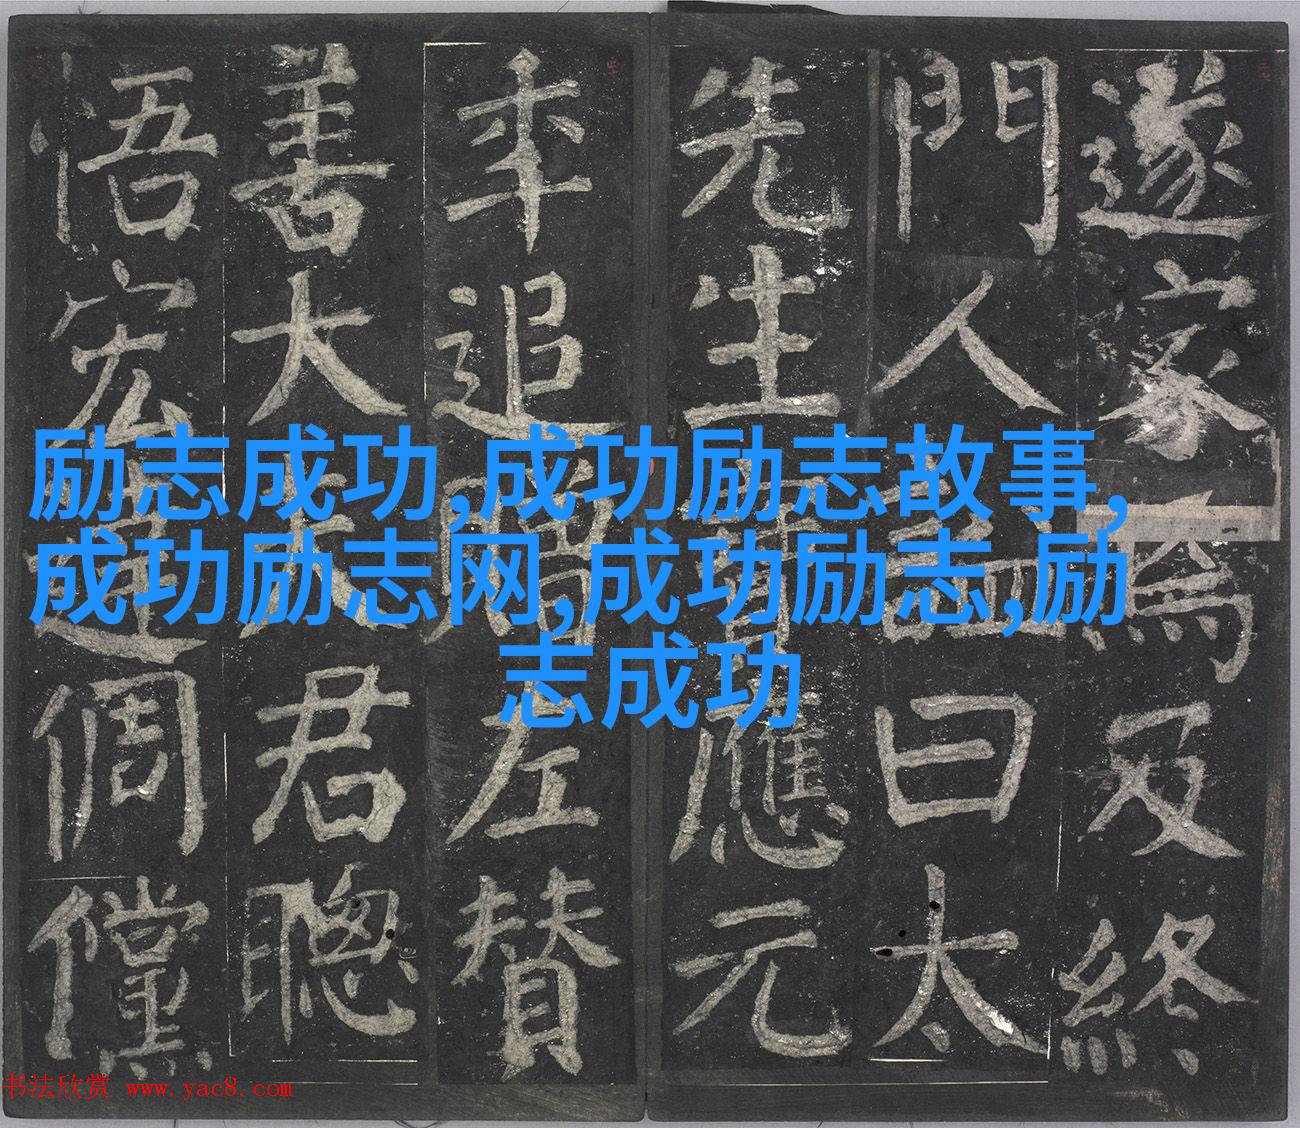 遂家為及終
門人曰太
先生寶應元
秊追贈左贊
善大夫君聰
悟宏達倜儻
励志成功,成功励志故事,
成功励志网,成功励志,励
志成功
书法欣赏 www.yac8.com